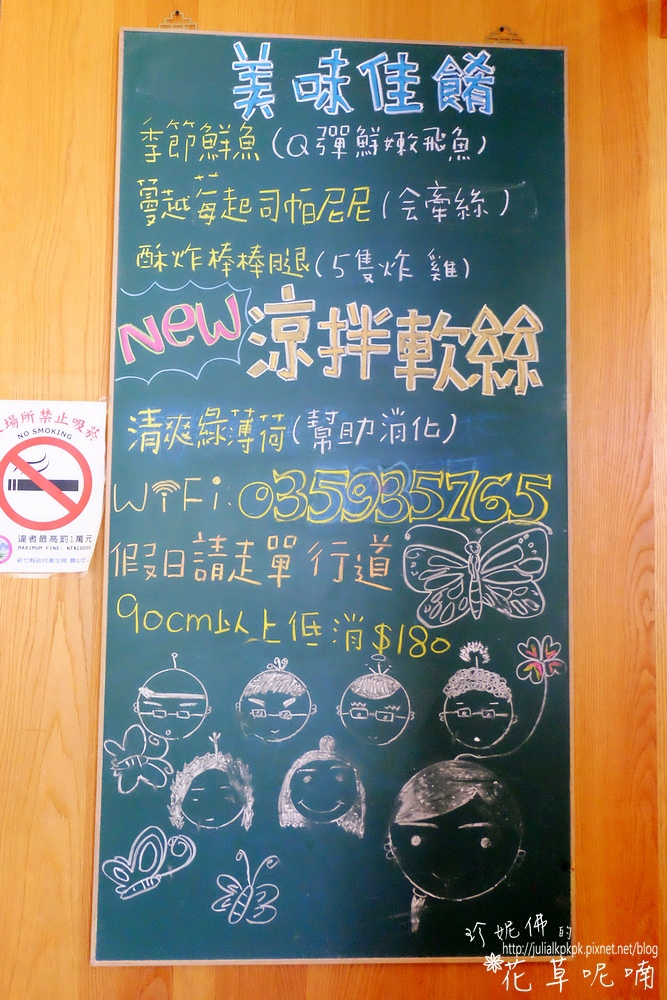 美味佳餚
季節鮮魚(Q彈鮮嫩飛魚)
蔓越莓起司帕尼尼(会牽絲)
酥炸棒棒腿(5隻炸雞)
New 涼拌軟絲
清爽綠薄荷(幫助消化)
WiFi:035935765
假日請走單行道
90cm以上低消$180
場所禁止吸菸
NO SMOKING
違者最高罰1萬元
MAXIMUM FINE: NT$10000
珍妮佛的
http://julialkpkpk.pixnet.net/blog
花草呢喃